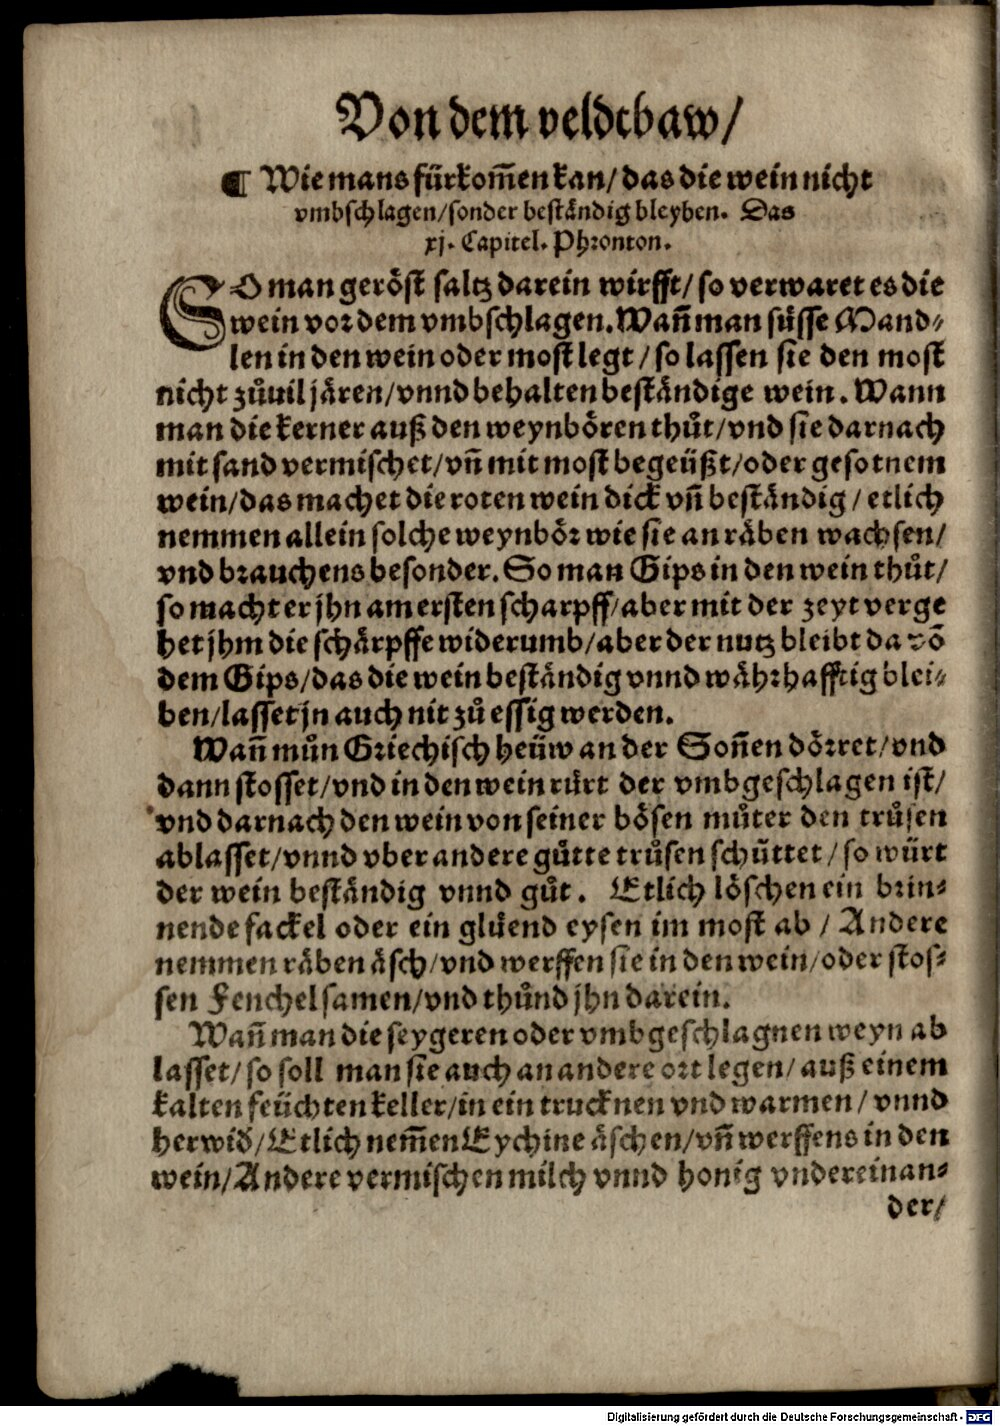 Von dem veldtbaw/
¶ Wie mans fürkom̃en kan/ das die wein nicht
vmbschlagen/sonder beständig bleyben. Das
xj. Capitel. Phronton.
SO man geröst saltz darein wirfft/ so verwaret es die
wein vor dem vmbschlagen. Wañ man süsse Mand-
len in den wein oder most legt/ so lassen sie den most
nicht zůuil jären/vnnd behalten beständige wein. Wann
man die kerner auß den weynbören thůt/vnd sie darnach
mit sand vermischet/vñ mit most begeüßt/oder gesotnem
wein/das machet die roten wein dick vñ beständig/ etlich
nemmen allein solche weynbör wie sie an räben wachsen/
vnd brauchens besonder. So man Gips in den wein thůt/
so macht er jhn am ersten scharpff/aber mit der zeyt verge
het jhm die schärpffe widerumb/aber der nutz bleibt da võ
dem Gips/das die wein beständig vnnd währhafftig blei-
ben/lasset jn auch nit zů essig werden.
Wañ můn Griechisch heüw an der Soñen dörret/vnd
dann stosset/vnd in den wein rürt der vmbgeschlagen ist/
vnd darnach den wein von seiner bösen můter den trůsen
ablasset/vnnd vber andere gůtte trůsen schüttet/ so würt
der wein beständig vnnd gůt. Etlich löschen ein brin-
nende fackel oder ein glüend eysen im most ab/ Andere
nemmen räben äsch/vnd werffen sie in den wein/oder stos-
sen Fenchelsamen/vnd thůnd jhn darein.
Wañ man die seygeren oder vmbgeschlagnen weyn ab
lasset/ so soll man sie auch an andere ort legen/ auß einem
kalten feüchten keller/in ein trucknen vnd warmen/ vnnd
herwid̃/Etlich nem̃en Eychine äschen/vñ werffens in den
wein/Andere vermischen milch vnnd honig vndereinan-
der/
Digitalisierung gefördert durch die Deutsche Forschungsgemeinschaft - DFG